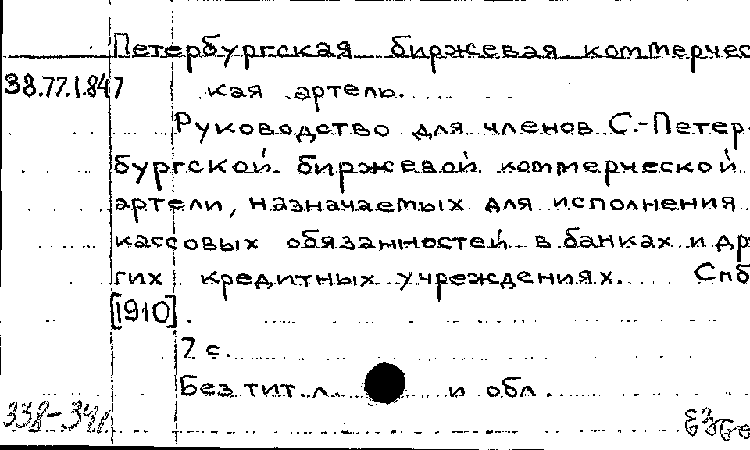 Петербургская биржевая коммерчес
38.77.1.847 кая артель.
Руководство для членов С.-Петер-
бургской биржевой коммерческой
артели, назначаемых для исполнения
кассовых обязанностей в банках и др
гих кредитных учреждениях. Спб
[1910].
2 с.
Без тит. л. и обл.